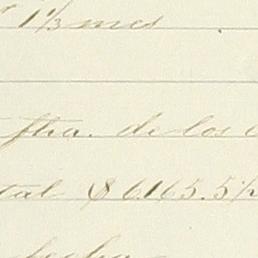 1 1/3 mes
ftra. de los
tal $ 6.165.5 1/2
fecha